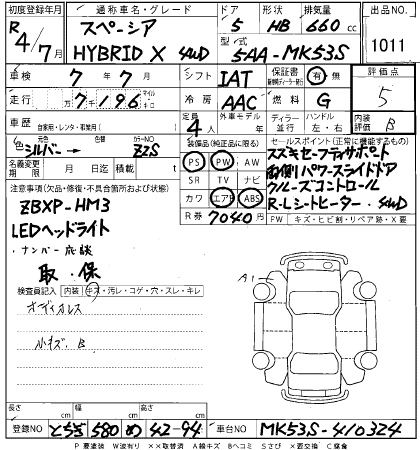 初度登録年月 通称車名・グレード ドア 形状 排気量 出品NO
R4/7月 スペーシア HYBRID X 4WD 5 HB 660cc 1011
型式 5AA-MK53S
車検 7年7月 シフト IAT 保証書 有 無 評価点
走行 7千196 マイル キロ 冷房 AAC 燃料 G 5
車歴 自家用・レンタ・事業用( ) 定員 4人 外車モデル 年 ディーラー 並行 ハンドル 左・右 内装 B
色 シルバー → カラーNO ZZS
名義変更期限 月 日 積載 t
装備品(純正品に限る)
PS PW AW
SR TV ナビ
カワ エアB ABS
R券 7040円
セールスポイント(正常に機能するもの)
スズキセーフティサポート
両側パワースライドドア
クルーズコントロール
R-Lシートヒーター・4WD
PW キズ・ヒビ割・リペア跡・X要
注意事項(欠品・修復・不具合箇所および状態)
ZBXP-HM3
LEDヘッドライト
・ナンバー応談
取・保
検査員記入 内装 キズ・汚レ・コゲ・穴・スレ・キレ
オーディオレス
小キズ、B
A1
長さ cm 幅 cm 高さ cm
登録NO とちぎ 580 め 42-94 車台NO MK53S-410324
P 要塗装 W波有り XX取替済 A線キズ Bヘコミ Sさび X要交換 C腐食